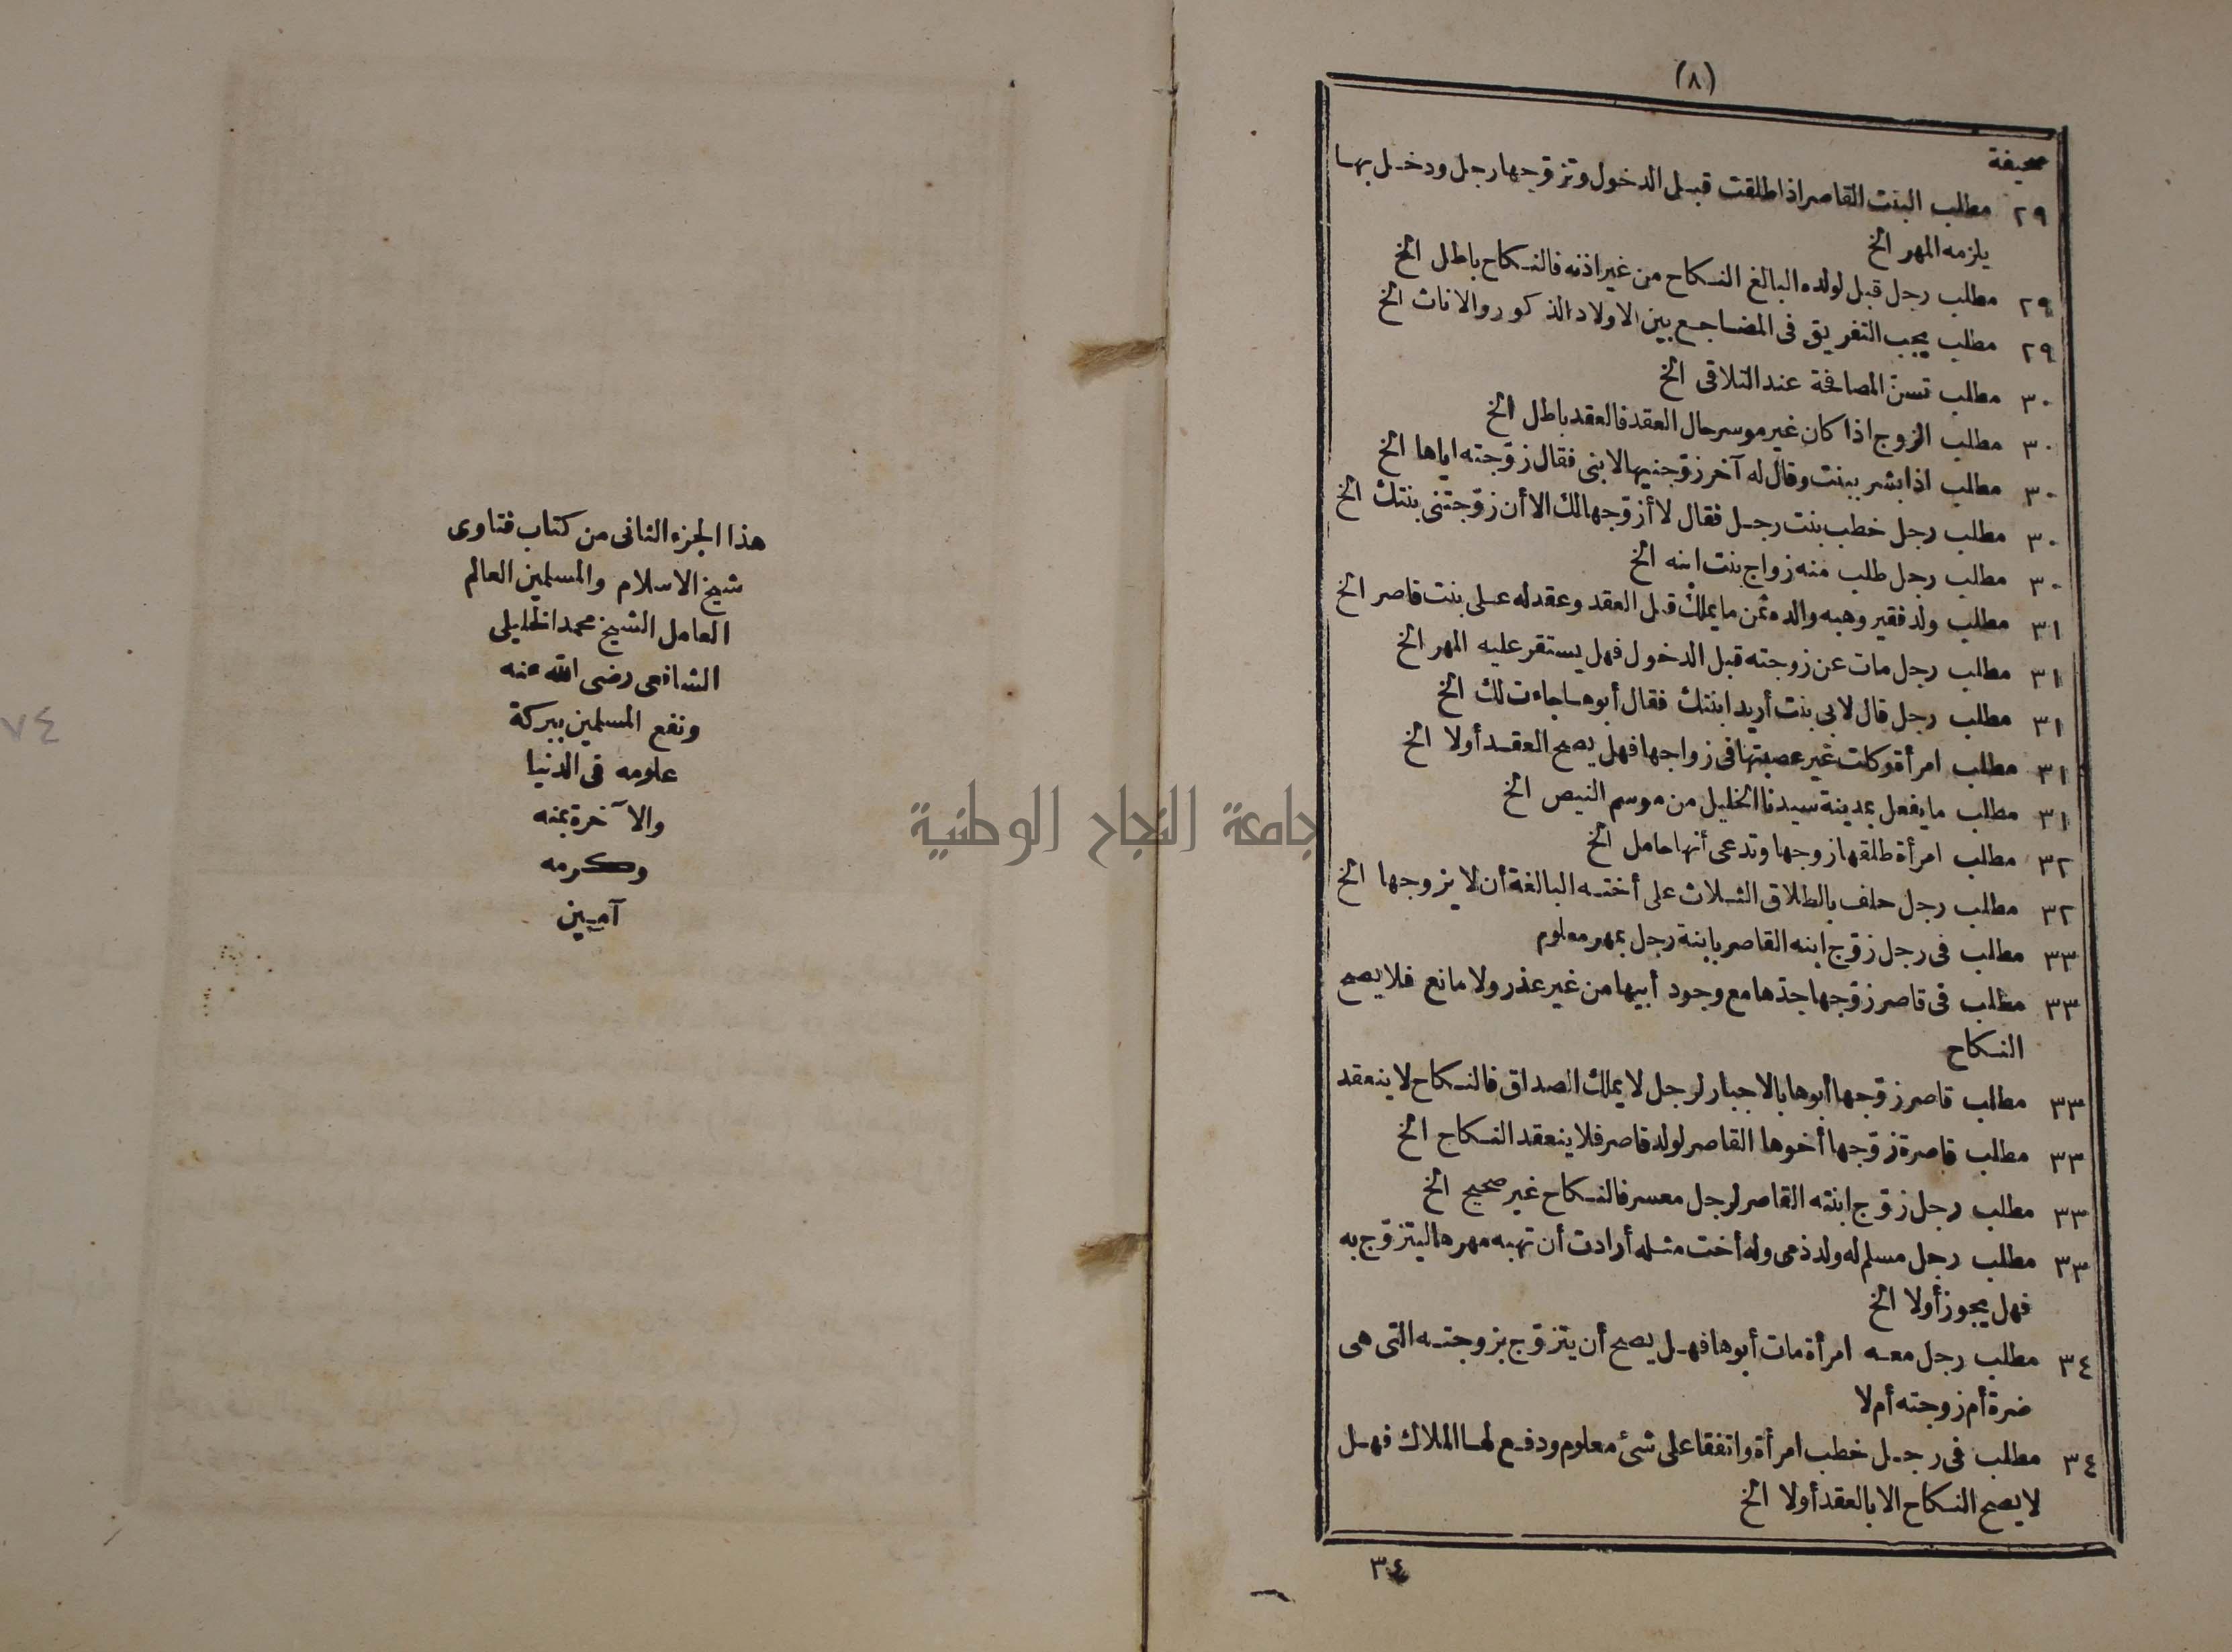 (٨)
صحيفة
٢٩ مطلب البنت القاصر اذا طلقت قبل الدخول وتزوّجها رجل ودخل بها
يلزمه المهر الخ
٢٩ مطلب رجل قبل لولده البالغ النكاح من غير اذنه فالنكاح باطل الخ
٢٩ مطلب يجب التفريق فى المضاجع بين الاولاد الذكور والاناث الخ
٣٠ مطلب تسنّ المصافحة عند التلاقى الخ
٣٠ مطلب الزوج اذا كان غير موسر حال العقد فالعقد باطل الخ
٣٠ مطلب اذا بشر ببنت وقال له آخر زوّجنيها لابنى فقال زوّجته اياها الخ
٣٠ مطلب رجل خطب بنت رجل فقال لا أزوّجها لك الا أن زوّجتنى بنتك الخ
٣٠ مطلب رجل طلب منه زواج بنت ابنه الخ
٣١ مطلب ولد فقير وهبه والده ثمن ما يملك قبل العقد وعقد له على بنت قاصر الخ
٣١ مطلب رجل مات عن زوجته قبل الدخول فهل يستقر عليه المهر الخ
٣١ مطلب رجل قال لابى بنت أريد ابنتك فقال أبوها جاءت لك الخ
٣١ مطلب امرأة وكلت غير عصبتها فى زواجها فهل يصح العقد أولا الخ
٣١ مطلب ما يفعل بمدينة سيدنا الخليل من موسم النيص الخ
٣٢ مطلب امرأة طلقها زوجها وتدعى أنها حامل الخ
٣٢ مطلب رجل حلف بالطلاق الثلاث على أخته البالغة أن لا يزوجها الخ
٣٣ مطلب فى رجل زوّج ابنه القاصر بابنة رجل بمهر معلوم
٣٣ مطلب فى قاصر زوّجها جدّها مع وجود أبيها من غير عذر ولا مانع فلا يصح
النكاح
٣٣ مطلب قاصر زوّجها أبوها بالاجبار لرجل لا يملك الصداق فالنكاح لا ينعقد
٣٣ مطلب قاصرة زوّجها أخوها القاصر لولد قاصر فلا ينعقد النكاح الخ
٣٣ مطلب رجل زوّج ابنته القاصر لرجل معسر فالنكاح غير صحيح الخ
٣٣ مطلب رجل مسلم له ولد ذمى وله أخت مثله أرادت أن تهبه مهرها ليتزوّج به
فهل يجوز أولا الخ
٣٤ مطلب رجل معه امرأة مات أبوها فهل يصح أن يتزوّج بزوجته التى هى
ضرة أم زوجته أم لا
٣٤ مطلب فى رجل خطب امرأة واتفقا على شئ معلوم ودفع لها الملاك فهل
لا يصح النكاح الا بالعقد أولا الخ
٣٤
هذا الجزء الثانى من كتاب فتاوى
شيخ الاسلام والمسلمين العالم
العامل الشيخ محمد الخليلى
الشافعى رضى الله عنه
ونفع المسلمين ببركة
علومه فى الدنيا
والآخرة بمنه
وكرمه
آمين
٧٤
جامعة النجاح الوطنية